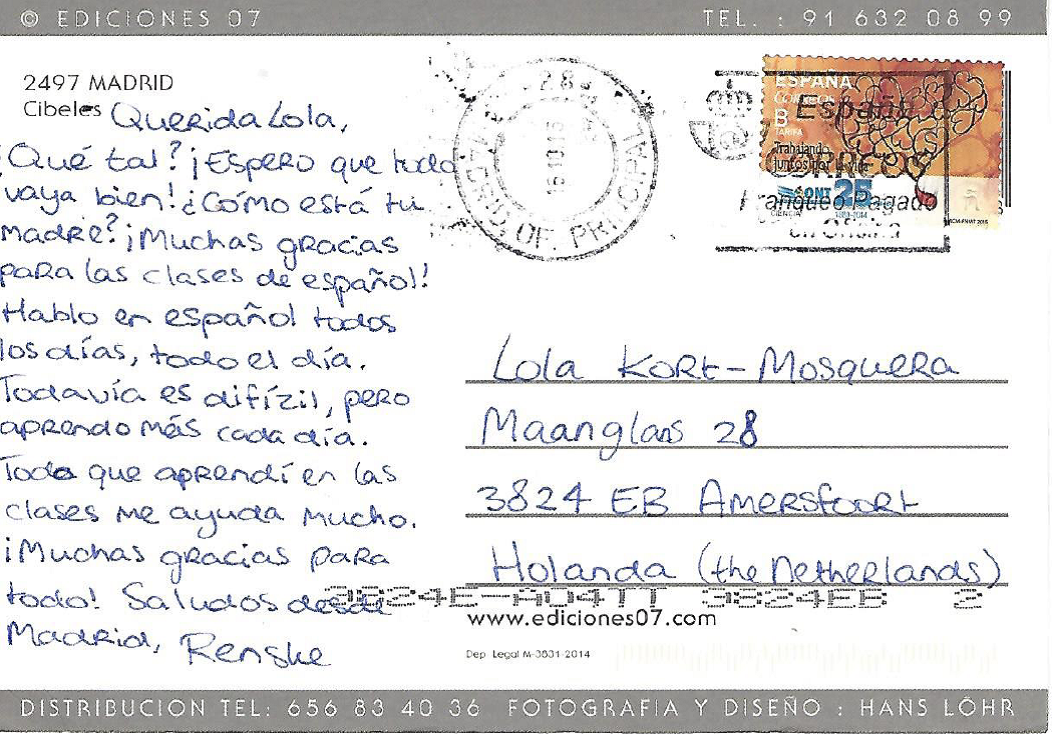 © EDICIONES 07
TEL. : 91 632 08 99
2497 MADRID
Cibeles
Querida Lola,
¿Qué tal? ¡Espero que todo
vaya bien! ¿Cómo está tu
madre? ¡Muchas gracias
para las clases de español!
Hablo en español todos
los días, todo el día.
Todavía es difízil, pero
aprendo más cada día.
Todo que aprendí en las
clases me ayuda mucho.
¡Muchas gracias para
todo! Saludos desde
Madrid, Renske
28
PRICPAL
ESPAÑA
CORREOS
B
TARIFA
Trabajando
juntos por la vida
ONT 25
CIENCIA
1989-2014
España
CORREOS
Franqueo Pagado
en Oficina
Lola Kort-Mosquera
Maanglans 28
3824 EB Amersfoort
Holanda (the Netherlands)
3824EB 2
www.ediciones07.com
Dep. Legal M-3831-2014
DISTRIBUCION TEL: 656 83 40 36 FOTOGRAFIA Y DISEÑO : HANS LÖHR